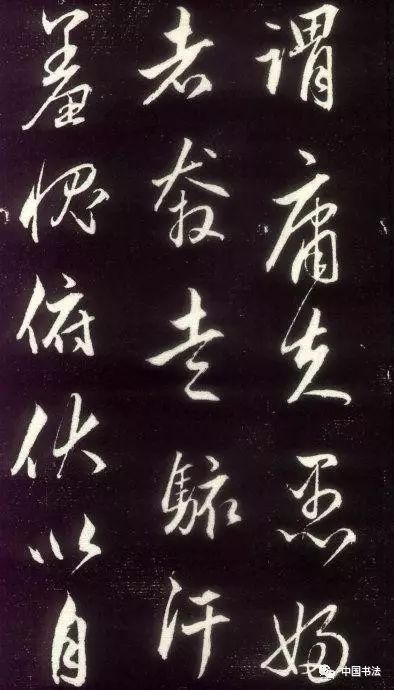 謂庸夫愚婦
者奔走駭汗
羞愧俯伏以自
中国书法